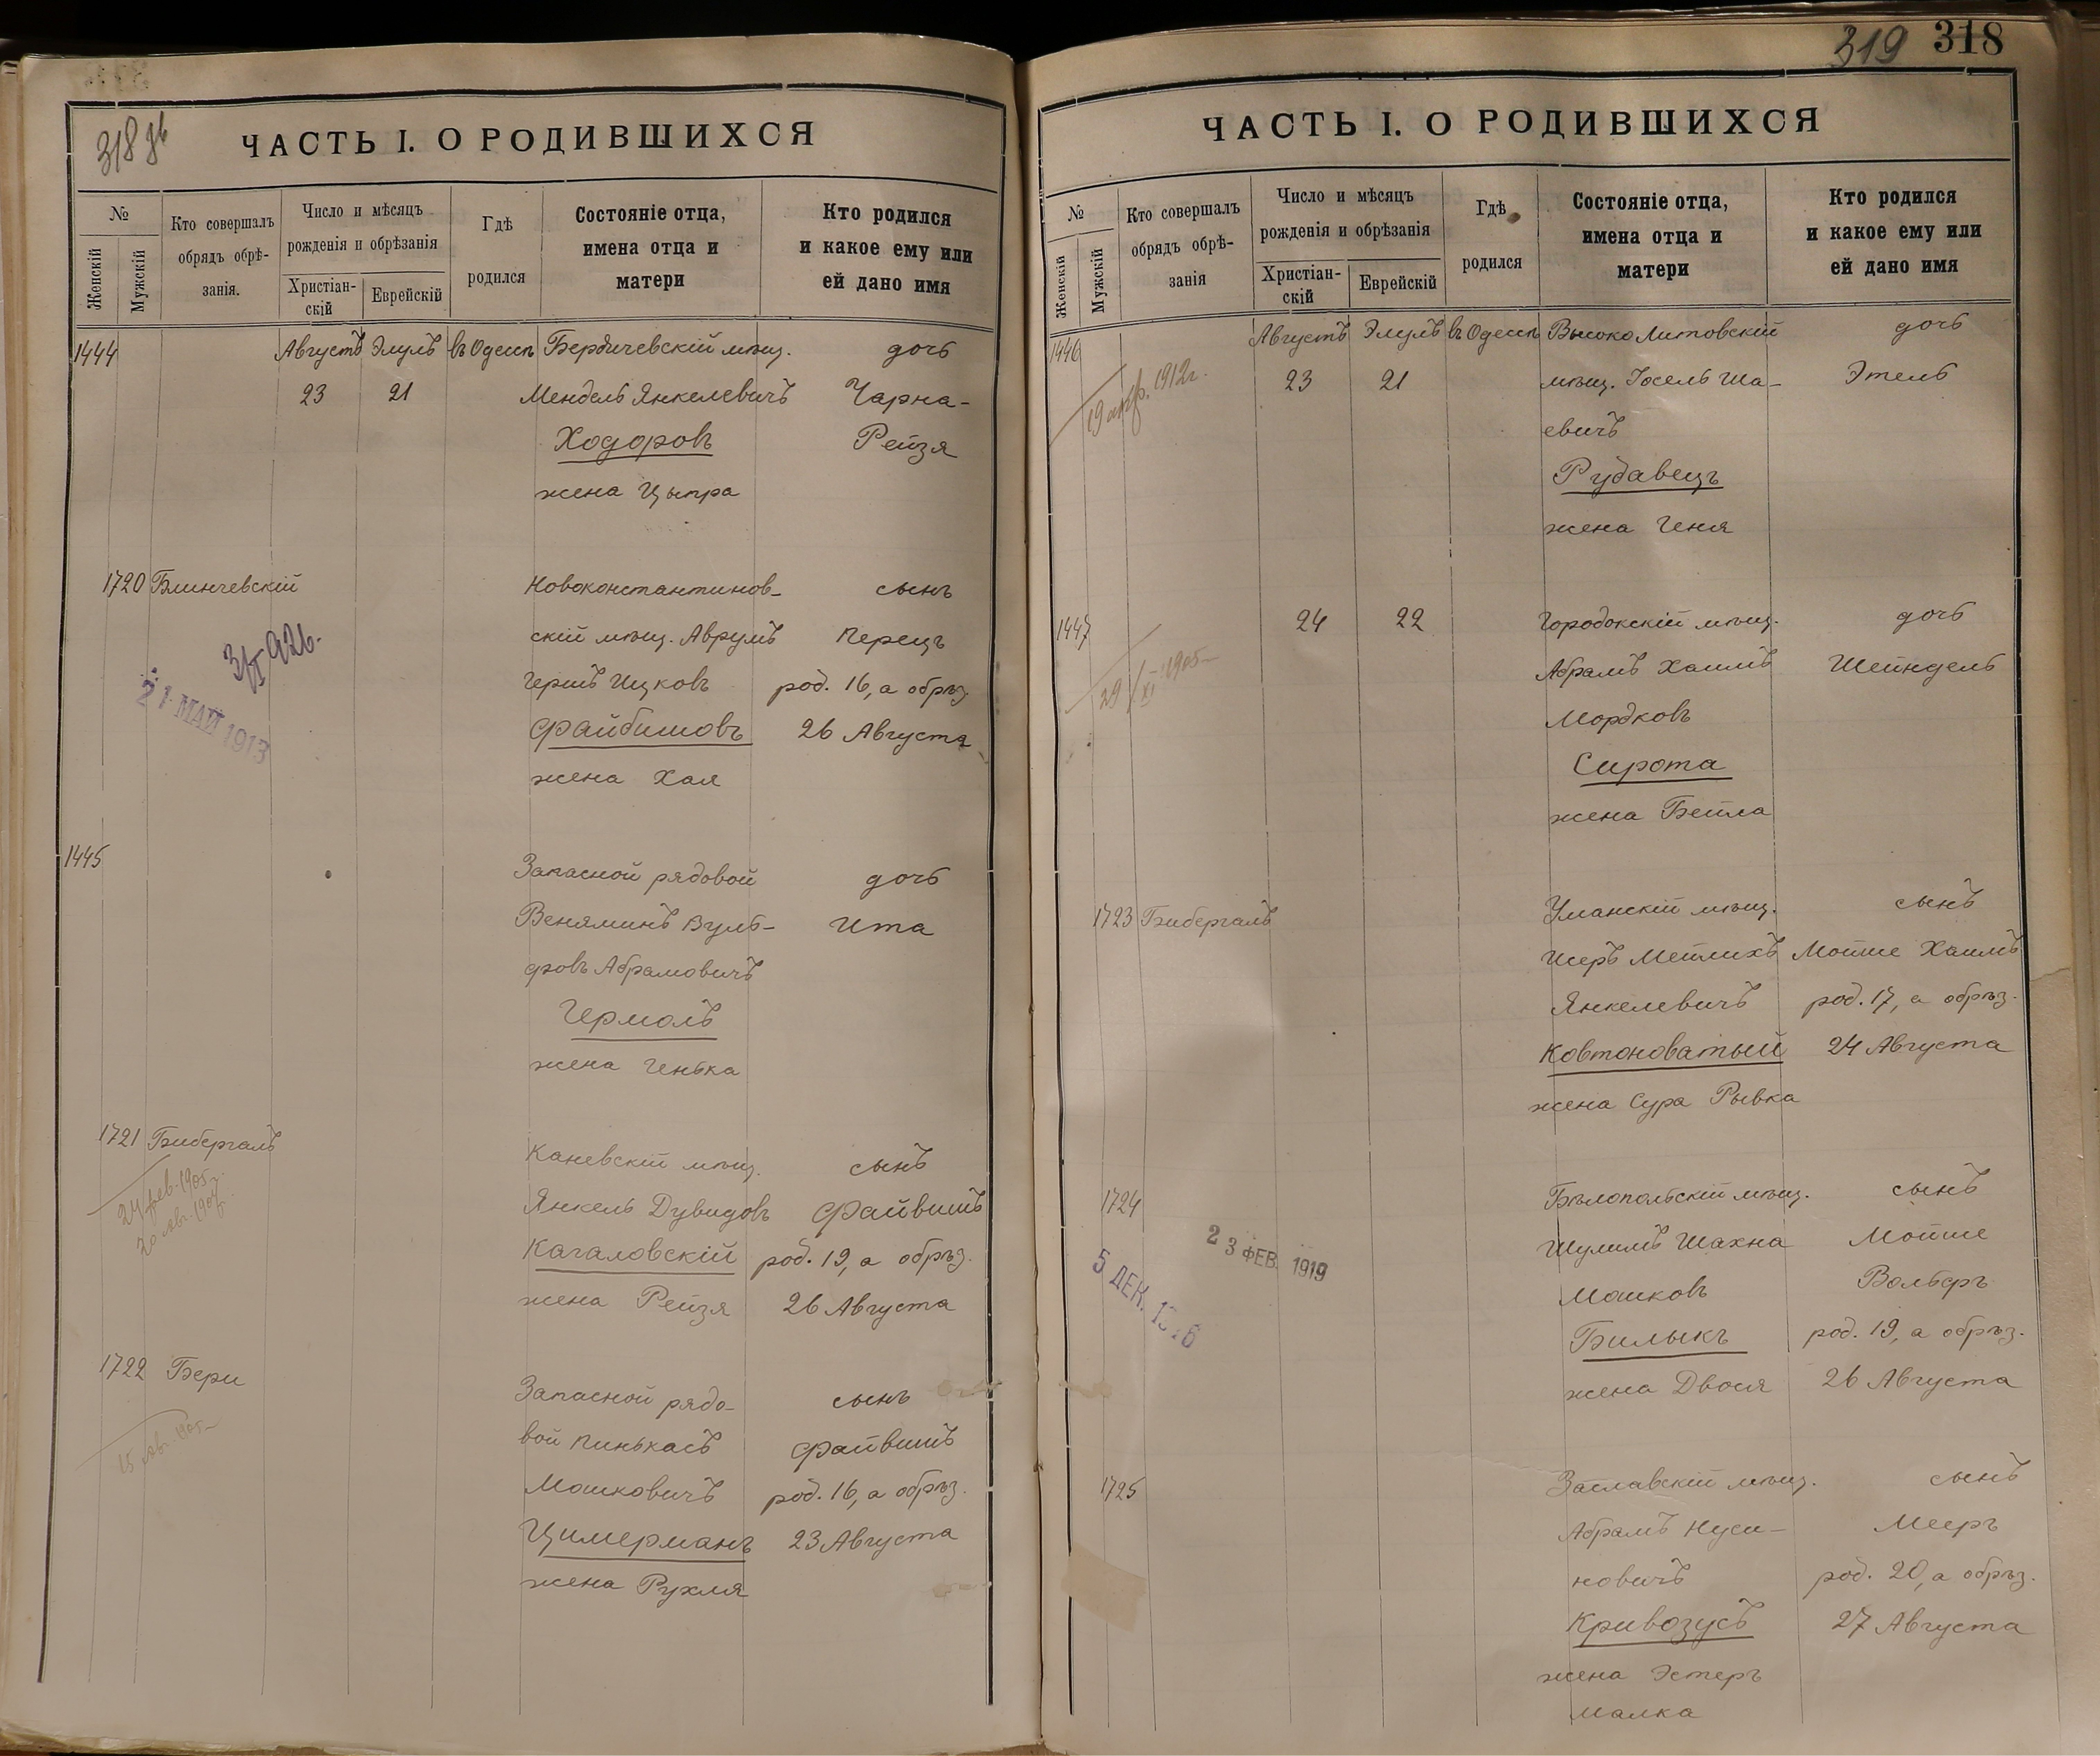 318 зв
ЧАСТЬ I. О РОДИВШИХСЯ
№
Женскій
Мужскій
Кто совершалъ
обрядъ обрѣ-
занія.
Число и мѣсяцъ
рожденія и обрѣзанія
Христіан-
скій
Еврейскій
Гдѣ
родился
Состояніе отца,
имена отца и
матери
Кто родился
и какое ему или
ей дано имя
1444 Августъ Элулъ въ Одессѣ Бердичевскій мѣщ. дочь
23 21 Мендель Янкелевичъ Чарна-
Ходоровъ Рейзя
жена Цыпра
1720 Блинчевскій Новоконстантинов- сынъ
скій мѣщ. Аврумъ Перецъ
Гершъ Ицковъ род. 16, а обрѣз.
Файбишовъ 26 Августа
жена Хая
21 МАЙ 1913
1445 Запасной рядовой дочь
Веняминъ Вуль- Ита
фовъ Абрамовичъ
Гермоль
жена Генька
1721 Бибергалъ Каневскій мѣщ. сынъ
24 фев. 1905 г.
Янкель Дувидовъ Файвишъ
Кагаловскій род. 19, а обрѣз.
жена Рейзя 26 Августа
1722 Бери Запасной рядо- сынъ
15 Авг. 1905
вой Пинькасъ Файвишъ
Мошковичъ род. 16, а обрѣз.
Цимерманъ 23 Августа
жена Рухля
319 318
ЧАСТЬ I. О РОДИВШИХСЯ
№
Женскій
Мужскій
Кто совершалъ
обрядъ обрѣ-
занія
Число и мѣсяцъ
рожденія и обрѣзанія
Христіан-
скій
Еврейскій
Гдѣ
родился
Состояніе отца,
имена отца и
матери
Кто родился
и какое ему или
ей дано имя
1446 Августъ Элулъ въ Одессѣ Высоко Литовскій дочь
19 апр. 1912 г.
23 21 мѣщ. Іосель Ша- Этель
евичъ
Рудавецъ
жена Геня
1447 24 22 Городокскій мѣщ. дочь
29/XI 1905
Абрамъ Хаимъ Шейндель
Мордковъ
Сирота
жена Бейла
1723 Бибергалъ Уманскій мѣщ. сынъ
Исеръ Мейлихъ Мойше Хаимъ
Янкелевичъ род. 17, а обрѣз.
Ковтоноватый 24 Августа
жена Сура Рывка
1724 Бѣлопольскій мѣщ. сынъ
Шулимъ Шахна Мойше
Мошковъ Вольфъ
Билыкъ род. 19, а обрѣз.
жена Двося 26 Августа
23 ФЕВ. 1919
5 ДЕК.
1725 Заславскій мѣщ. сынъ
Абрамъ Нуси- Мееръ
новичъ род. 20, а обрѣз.
Кривозусъ 27 Августа
жена Эстеръ
Малка